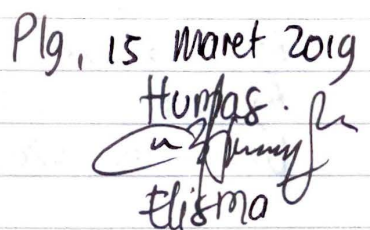 Plg, 15 Maret 2019
Humas.
Elisma